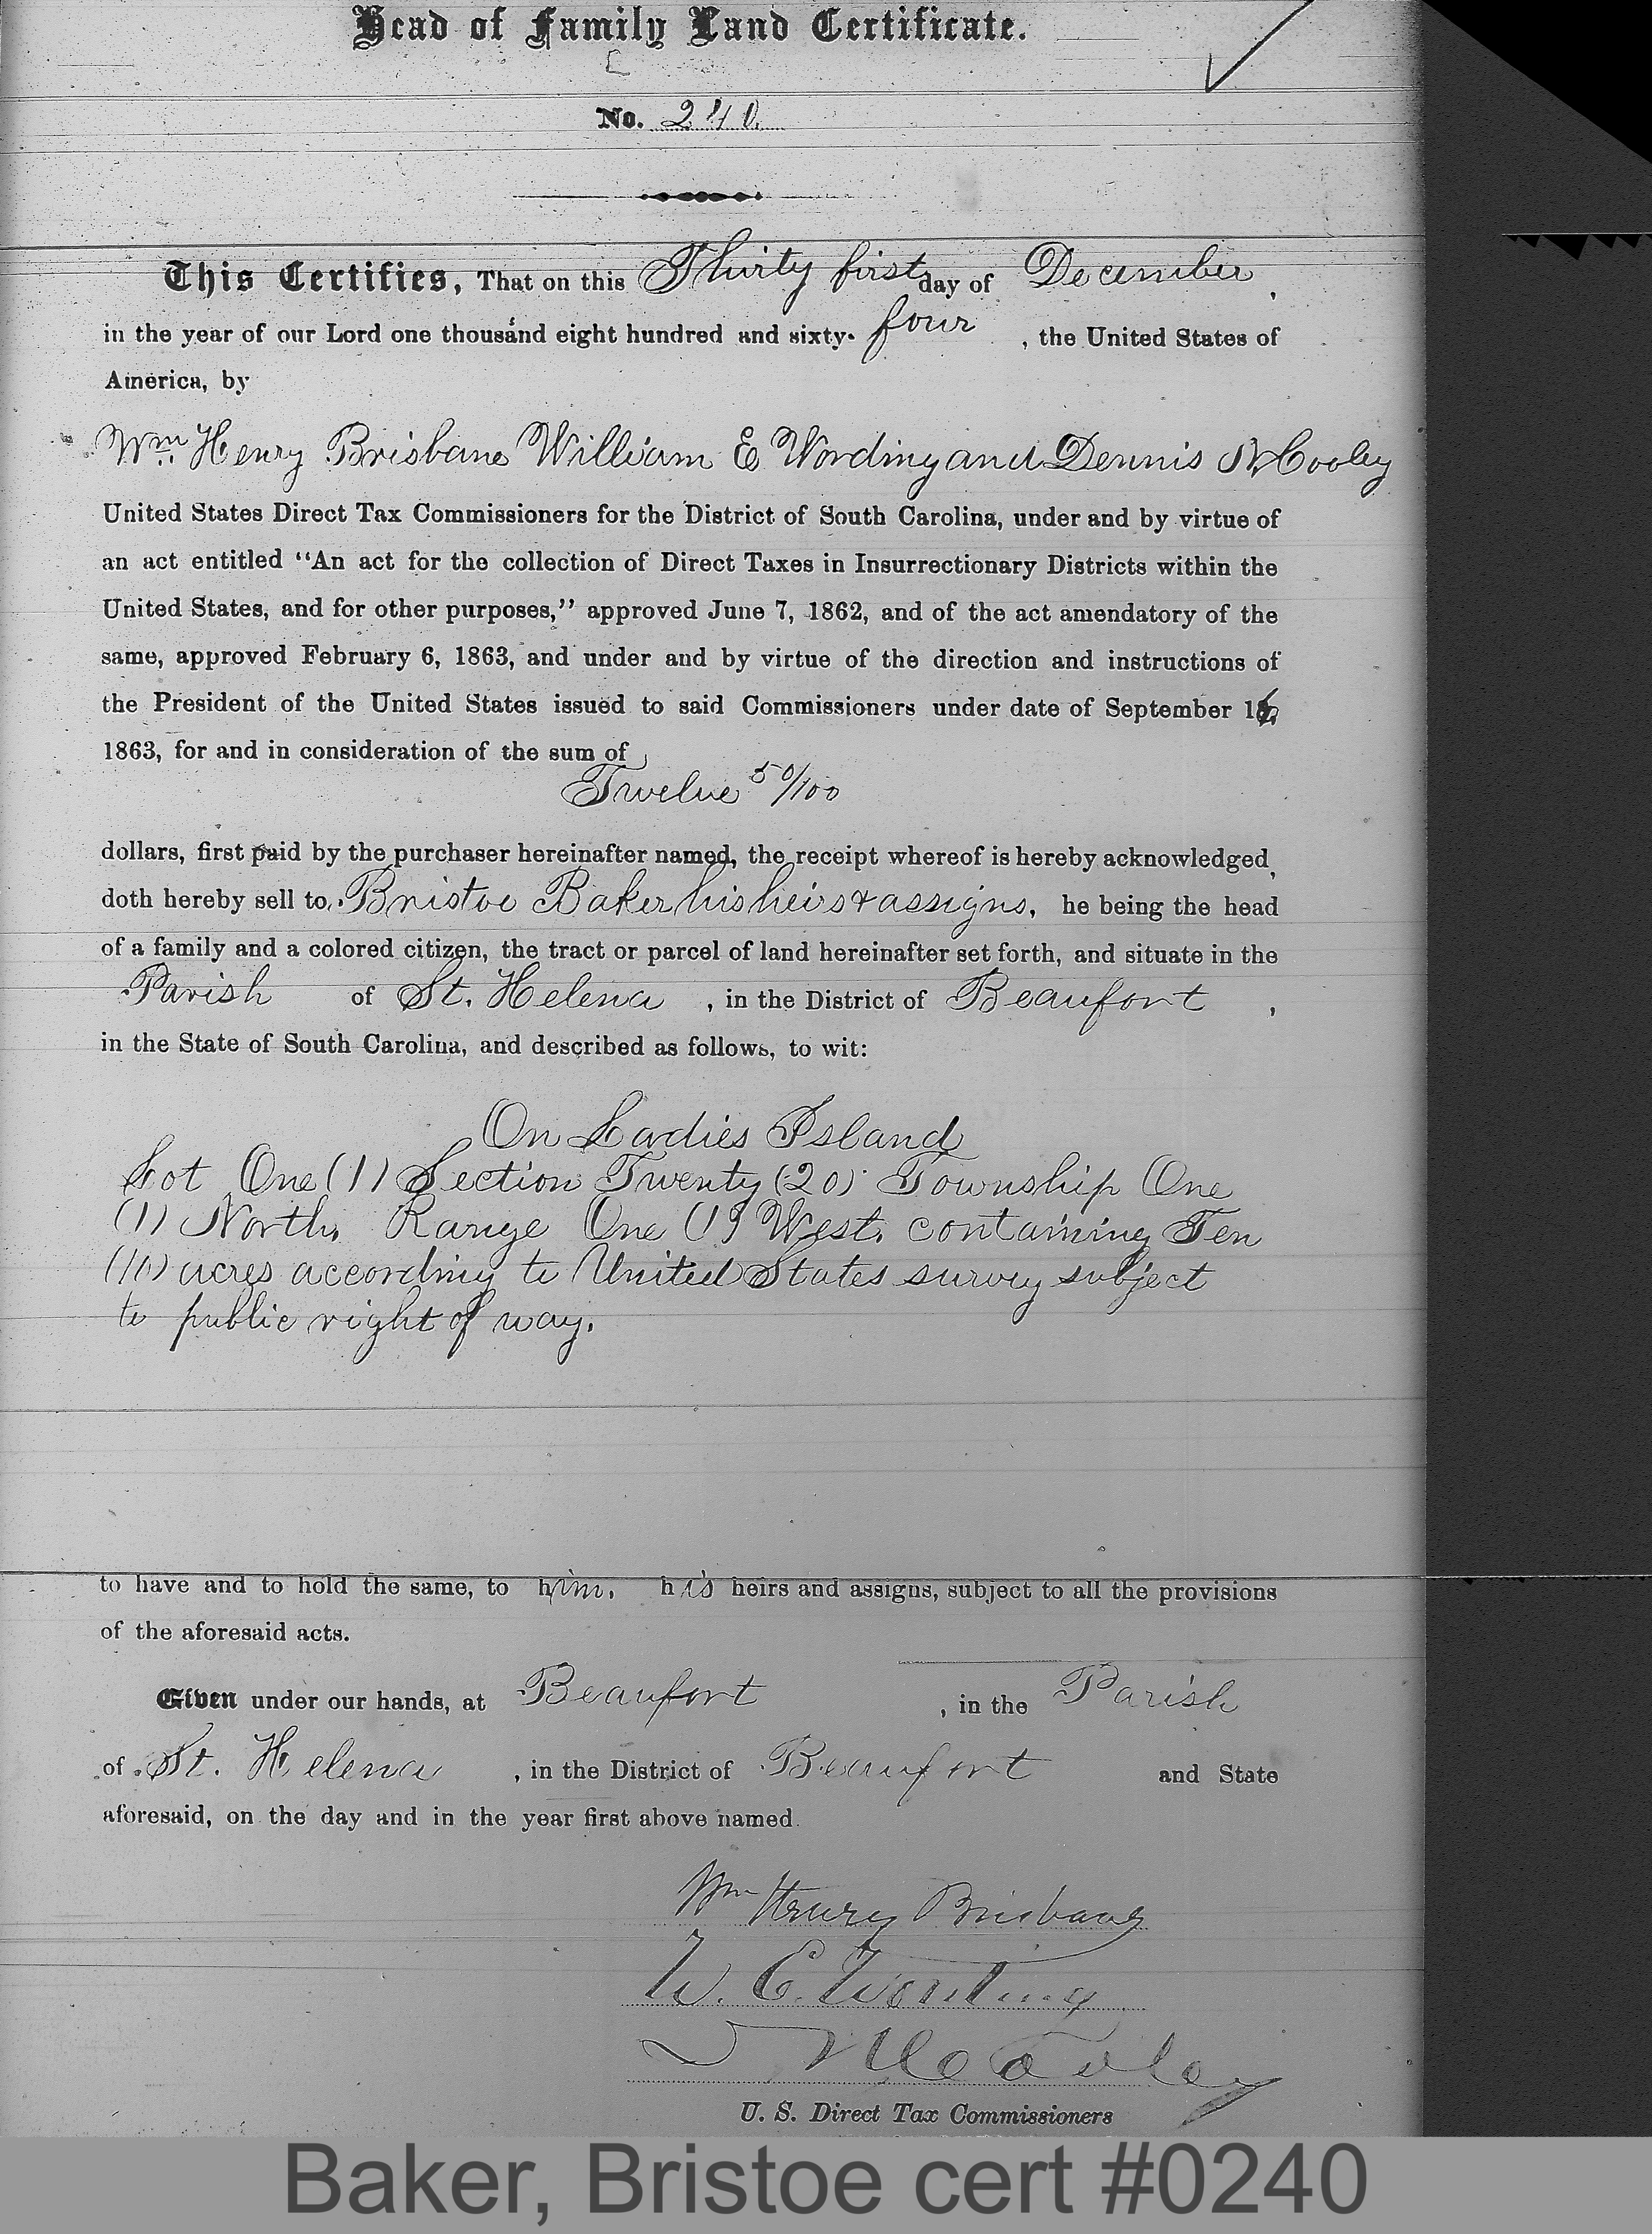 Head of Family Land Certificate.
No. 240.
This Certifies, That on this Thirty first day of December,
in the year of our Lord one thousand eight hundred and sixty-four, the United States of
America, by
Wm. Henry Brisbane William E Wording and Dennis N. Cooley
United States Direct Tax Commissioners for the District of South Carolina, under and by virtue of
an act entitled "An act for the collection of Direct Taxes in Insurrectionary Districts within the
United States, and for other purposes," approved June 7, 1862, and of the act amendatory of the
same, approved February 6, 1863, and under and by virtue of the direction and instructions of
the President of the United States issued to said Commissioners under date of September 16,
1863, for and in consideration of the sum of
Twelve 50/100
dollars, first paid by the purchaser hereinafter named, the receipt whereof is hereby acknowledged,
doth hereby sell to Bristoe Baker his heirs & assigns, he being the head
of a family and a colored citizen, the tract or parcel of land hereinafter set forth, and situate in the
Parish of St. Helena, in the District of Beaufort,
in the State of South Carolina, and described as follows, to wit:
On Ladies Island
Lot One (1) Section Twenty (20) Township One
(1) North, Range One (1) West, containing Ten
(10) acres according to United States survey subject
to public right of way.
to have and to hold the same, to him, his heirs and assigns, subject to all the provisions
of the aforesaid acts.
Given under our hands, at Beaufort, in the Parish
of St. Helena, in the District of Beaufort and State
aforesaid, on the day and in the year first above named.
Wm Henry Brisbane
W. E. Wording
D N Cooley
U. S. Direct Tax Commissioners
Baker, Bristoe cert #0240